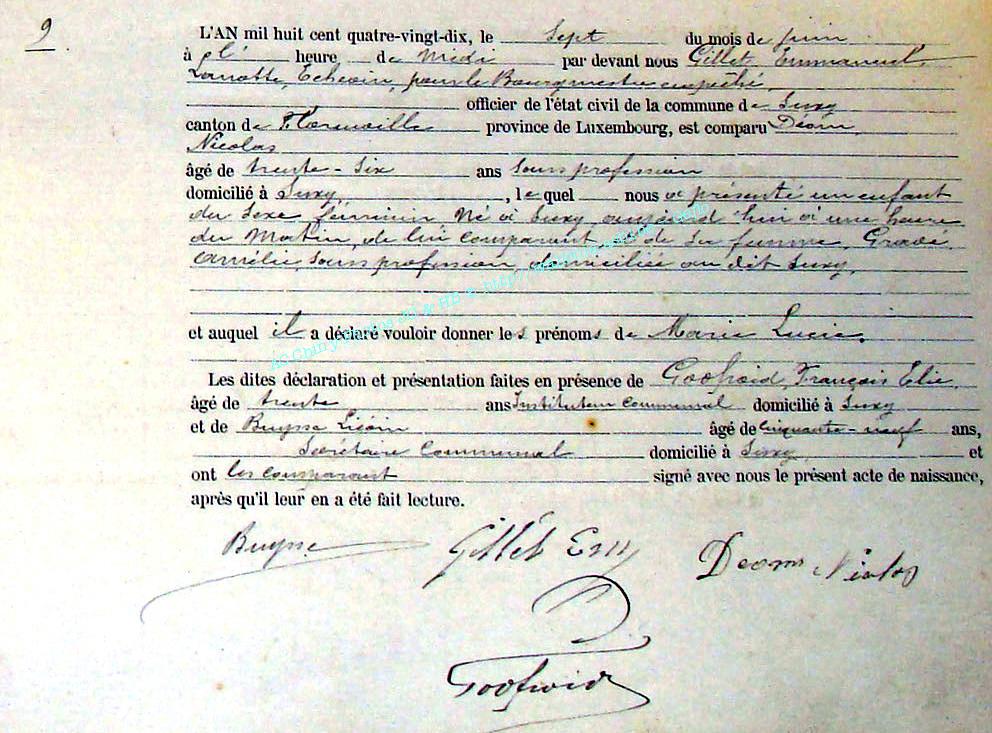 9
L'AN mil huit cent quatre-vingt-dix, le Sept du mois de juin
à heure de Midi par devant nous Gillet, Emmanuel,
Echevin, pour le Bourgmestre empêché,
officier de l'état civil de la commune de Suxy
canton de Florenville province de Luxembourg, est comparu Déom,
Nicolas
âgé de trente-six ans sans profession
domicilié à Suxy, , lequel nous a présenté un enfant
du sexe féminin Né à Suxy aujourd'hui à une heure
du Matin, de lui comparant et de sa femme, Gravé,
Amélie, sans profession, domiciliée au dit Suxy,
et auquel il a déclaré vouloir donner les prénoms de Marie Lucie.
Les dites déclaration et présentation faites en présence de Goffroid, François Elie,
âgé de trente ans Instituteur communal domicilié à Suxy
et de Buysse âgé de cinquante-neuf ans,
Secrétaire Communal domicilié à Suxy, et
ont les comparant signé avec nous le présent acte de naissance,
après qu'il leur en a été fait lecture.
Buysse Gillet Em Deom Nicolas
Goffroid